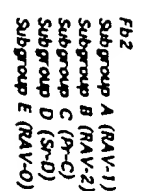 Fb2
Subgroup A (RAV-1)
Subgroup B (RAV-2)
Subgroup C (Pr-C)
Subgroup D (Sr-D)
Subgroup E (RAV-O)